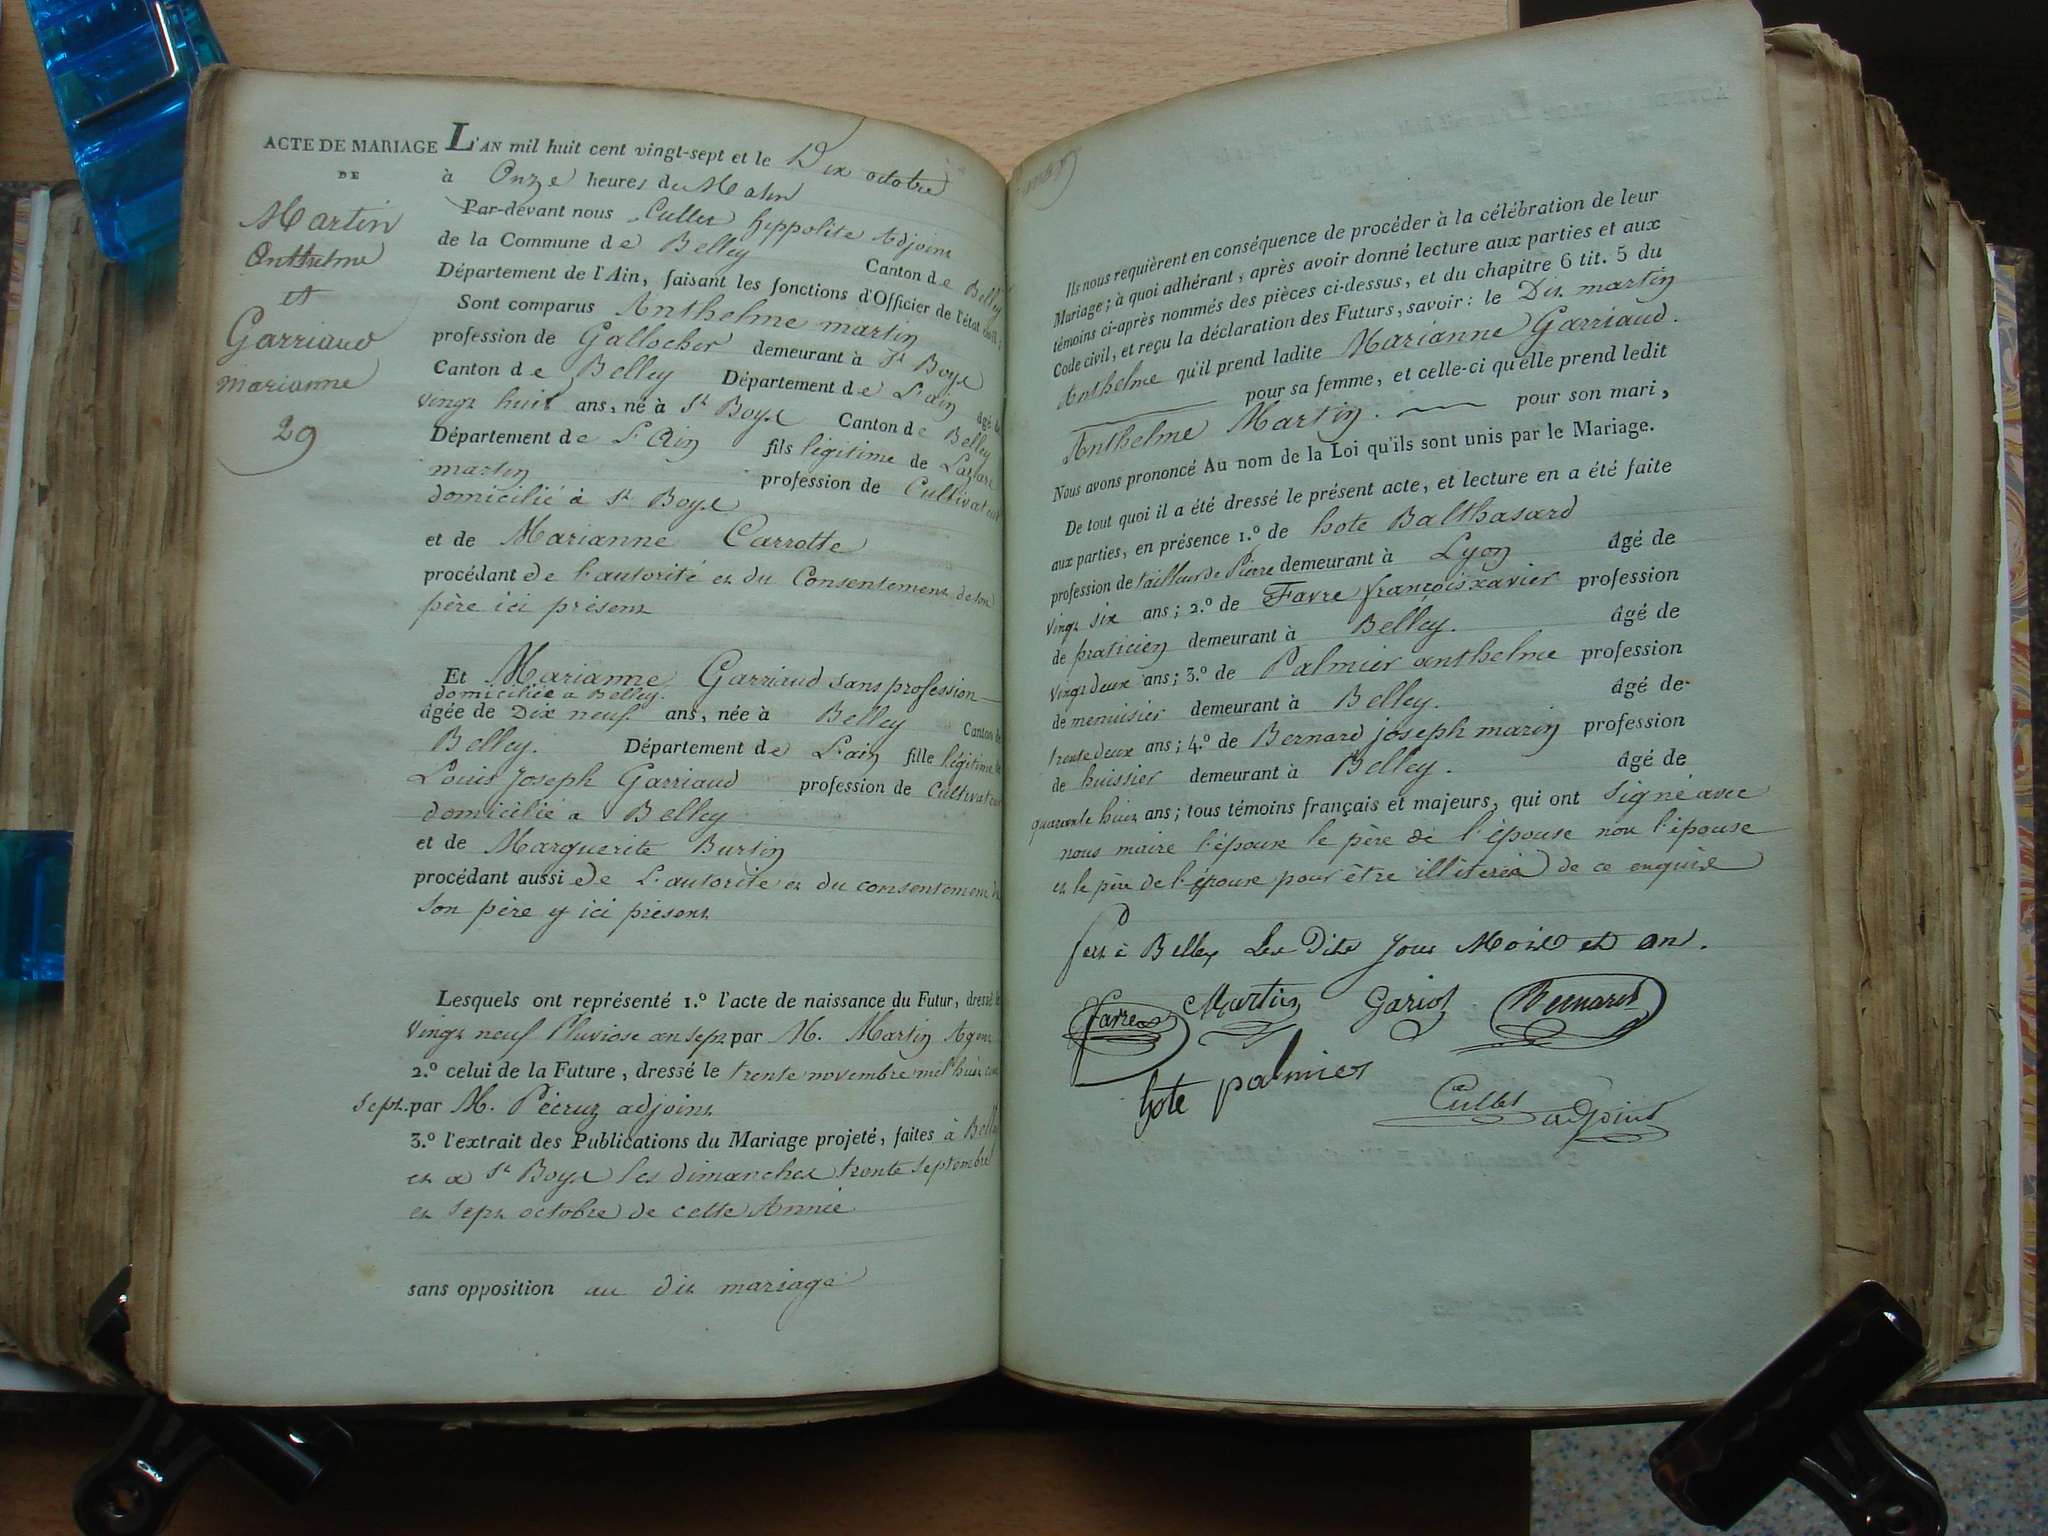 ACTE DE MARIAGE
DE
Martin
Anthelme
et
Garriaud
marianne
29
L'AN mil huit cent vingt-sept et le Dix octobre
à Onze heures du Matin
Par-devant nous Cullet hippolite Adjoint
de la Commune de Belley Canton de Belley
Département de l'Ain, faisant les fonctions d'Officier de l'état civil,
Sont comparus Anthelme martin
profession de Gallocher demeurant à St Boys
Canton de Belley Département de L'ain âgé de
vingt huit ans, né à St Boys Canton de Belley
Département de L'Ain fils légitime de Lazare
martin profession de Cultivateur
domicilié à St Boys
et de Marianne Carrotte
procédant de l'autorité et du Consentement de son
père ici présent
Et Marianne Garriaud sans profession
domiciliée a Belley.
âgée de Dix neuf ans, née à Belley Canton de
Belley. Département de L'ain fille légitime de
Louis Joseph Garriaud profession de Cultivateur
domicilié a Belley
et de Marguerite Burtin
procédant aussi de L'autorité et du consentement de
son père y ici présent
Lesquels ont représenté 1.º l'acte de naissance du Futur, dressé le
vingt neuf Pluviose an sept par M. Martin Agent
2.º celui de la Future, dressé le trente novembre mil huit cent
sept par M. Pécruz adjoint
3.º l'extrait des Publications du Mariage projeté, faites à Belley
et a St Boys les dimanches trente septembre
et sept octobre de cette Année
sans opposition au dit mariage
Ils nous requièrent en conséquence de procéder à la célébration de leur
Mariage; à quoi adhérant, après avoir donné lecture aux parties et aux
témoins ci-après nommés des pièces ci-dessus, et du chapitre 6 tit. 5 du
Code civil, et reçu la déclaration des Futurs, savoir: le Dit martin
Anthelme qu'il prend ladite Marianne Garriaud.
pour sa femme, et celle-ci qu'elle prend ledit
Anthelme Martin. pour son mari,
Nous avons prononcé Au nom de la Loi qu'ils sont unis par le Mariage.
De tout quoi il a été dressé le présent acte, et lecture en a été faite
aux parties, en présence 1.º de hote Balthasard
profession de tailleur de Pierre demeurant à Lyon âgé de
vingt six ans; 2.º de Favre françois xavier profession
de praticien demeurant à Belley. âgé de
vingt deux ans; 3.º de Palmier anthelme profession
de menuisier demeurant à Belley. âgé de
trente deux ans; 4.º de Bernard joseph marin profession
de huissier demeurant à Belley. âgé de
quarante huit ans; tous témoins français et majeurs, qui ont signé avec
nous maire l'époux le père de l'épouse non l'épouse
et le père de l'époux pour être illiterés de ce enquis
fait à Belley Les Dits Jour Mois et an.
favre Martin Gariod Bernard
hote palmier
Cullet
adjoint